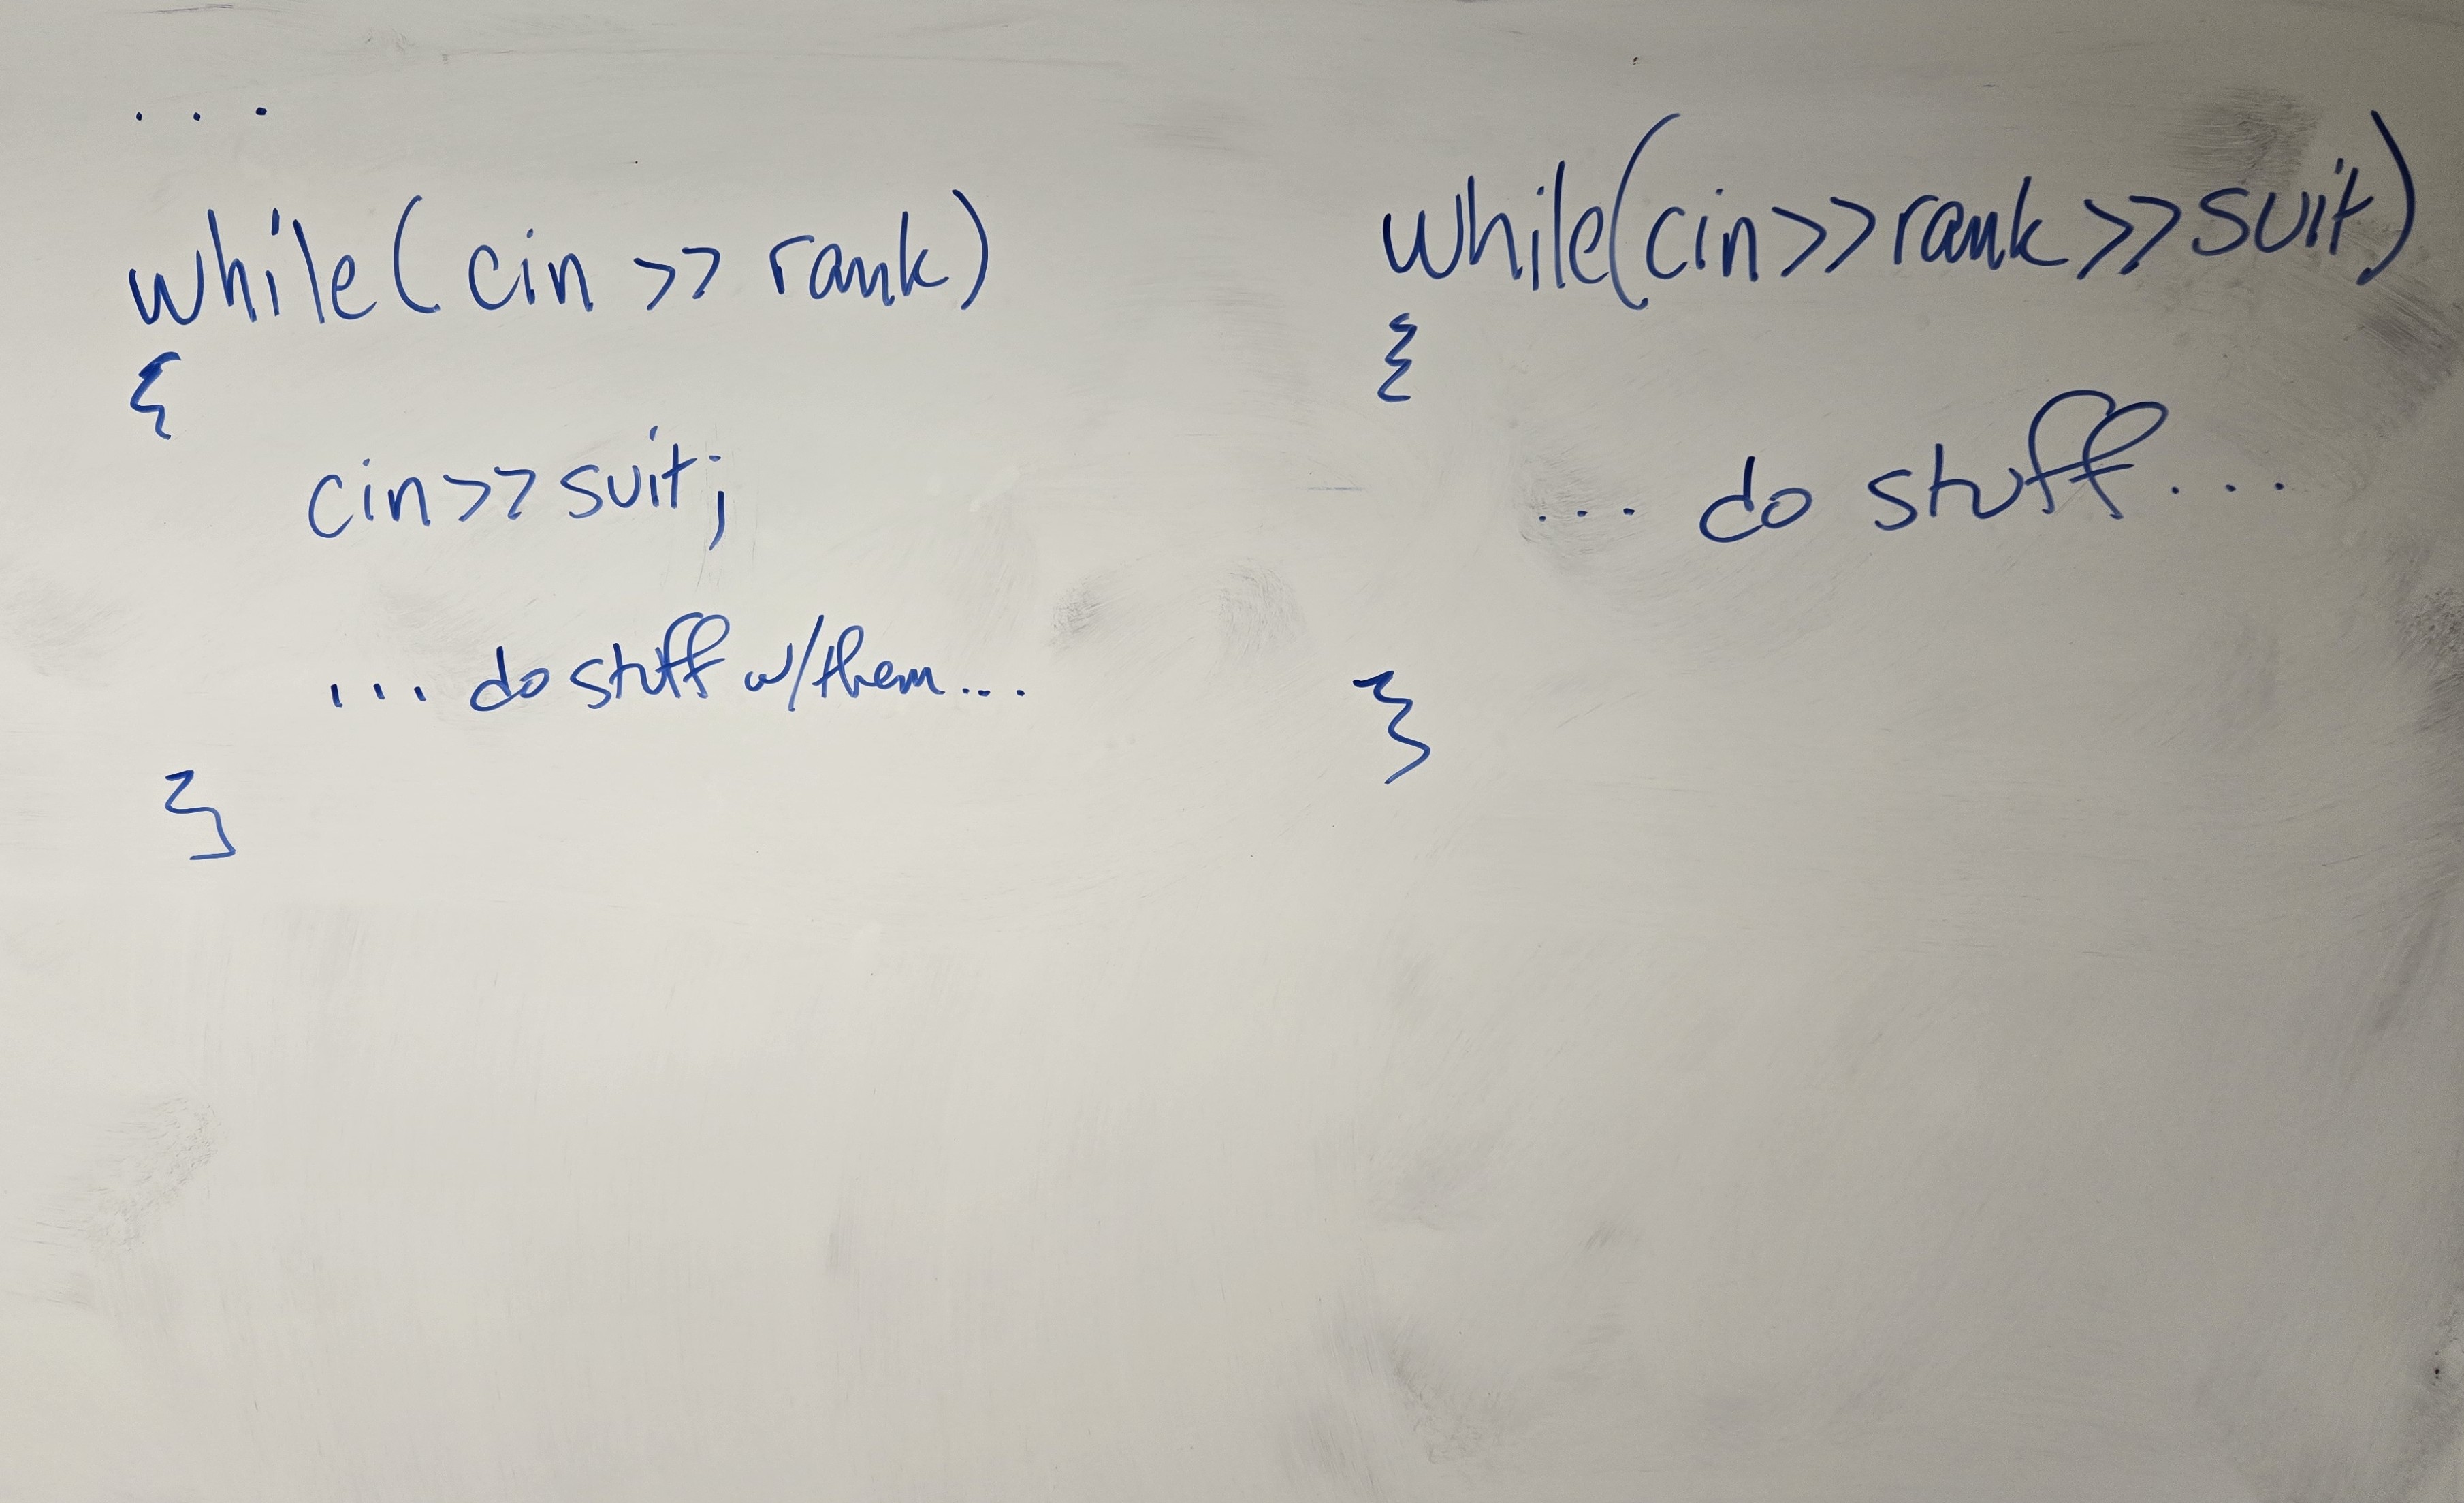 ...
while( cin >> rank)
{
cin>>suit;
... do stuff w/them...
}
while(cin>>rank>>suit)
{
... do stuff...
}